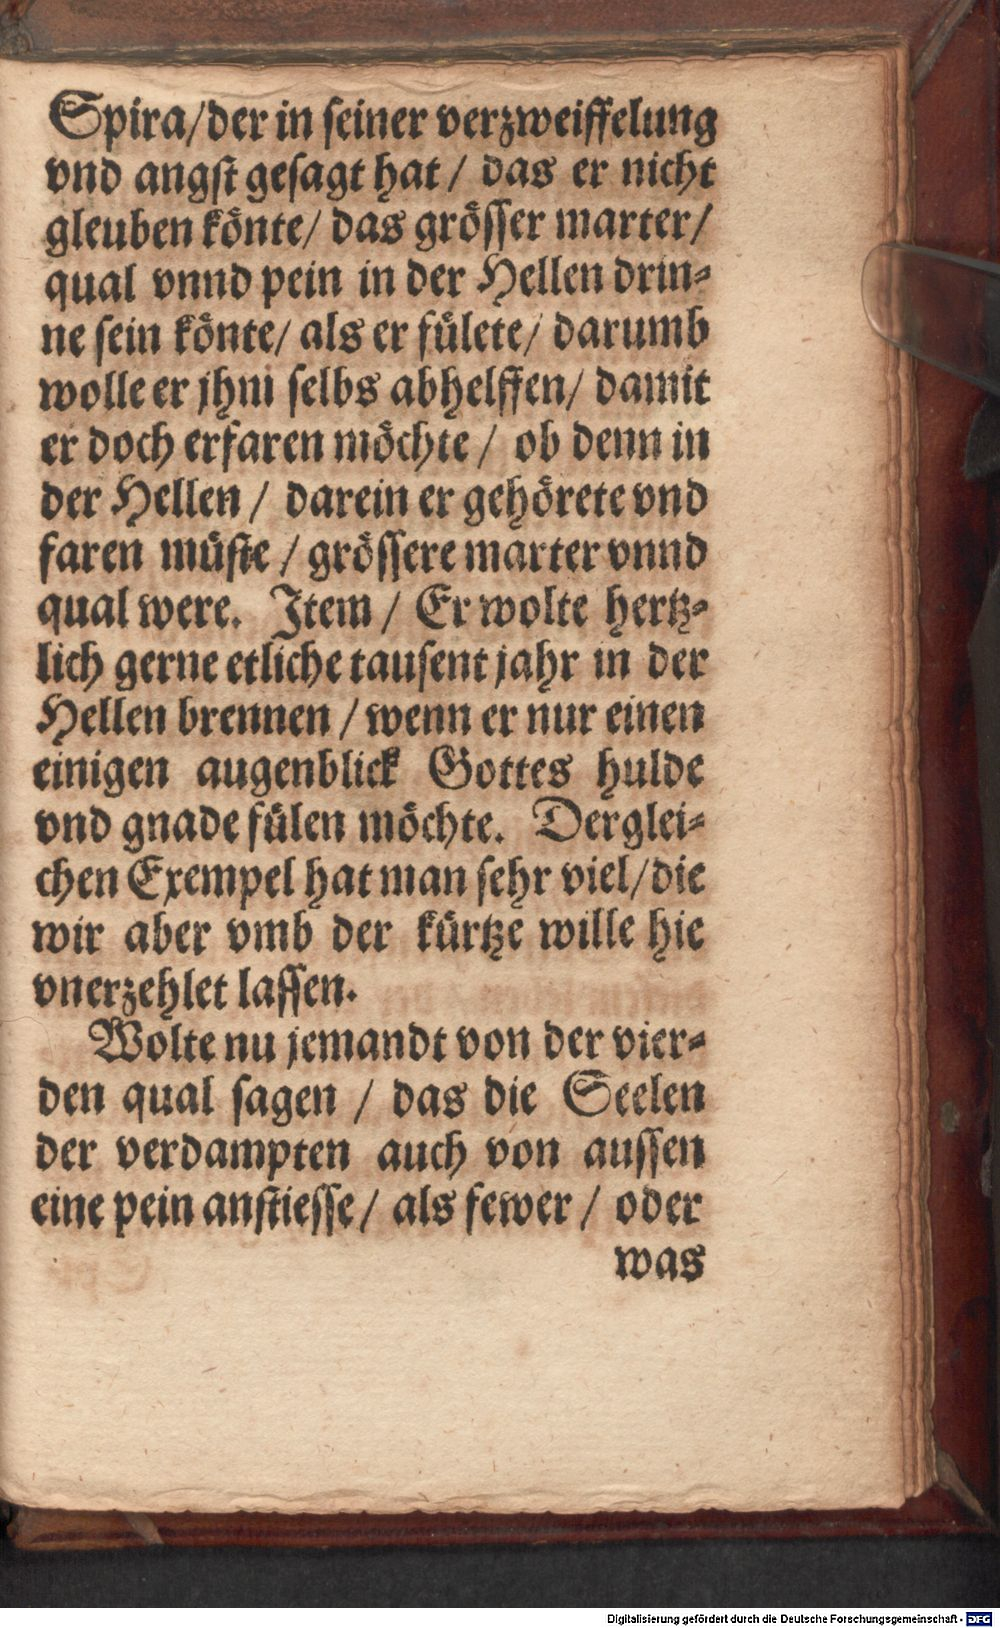 Spira/der in seiner verzweiffelung
vnd angst gesagt hat / das er nicht
gleuben könte/ das grösser marter/
qual vnnd pein in der Hellen drin-
ne sein könte/ als er fülete/ darumb
wolle er jhm selbs abhelffen/ damit
er doch erfaren möchte / ob denn in
der Hellen / darein er gehörete vnd
faren müste / grössere marter vnnd
qual were. Item / Er wolte hertz-
lich gerne etliche tausent jahr in der
Hellen brennen / wenn er nur einen
einigen augenblick Gottes hulde
vnd gnade fülen möchte. Derglei-
chen Exempel hat man sehr viel/die
wir aber vmb der kürtze wille hie
vnerzehlet lassen.
Wolte nu jemandt von der vier-
den qual sagen / das die Seelen
der verdampten auch von aussen
eine pein anstiesse/ als fewer / oder
was
Digitalisierung gefördert durch die Deutsche Forschungsgemeinschaft - DFG